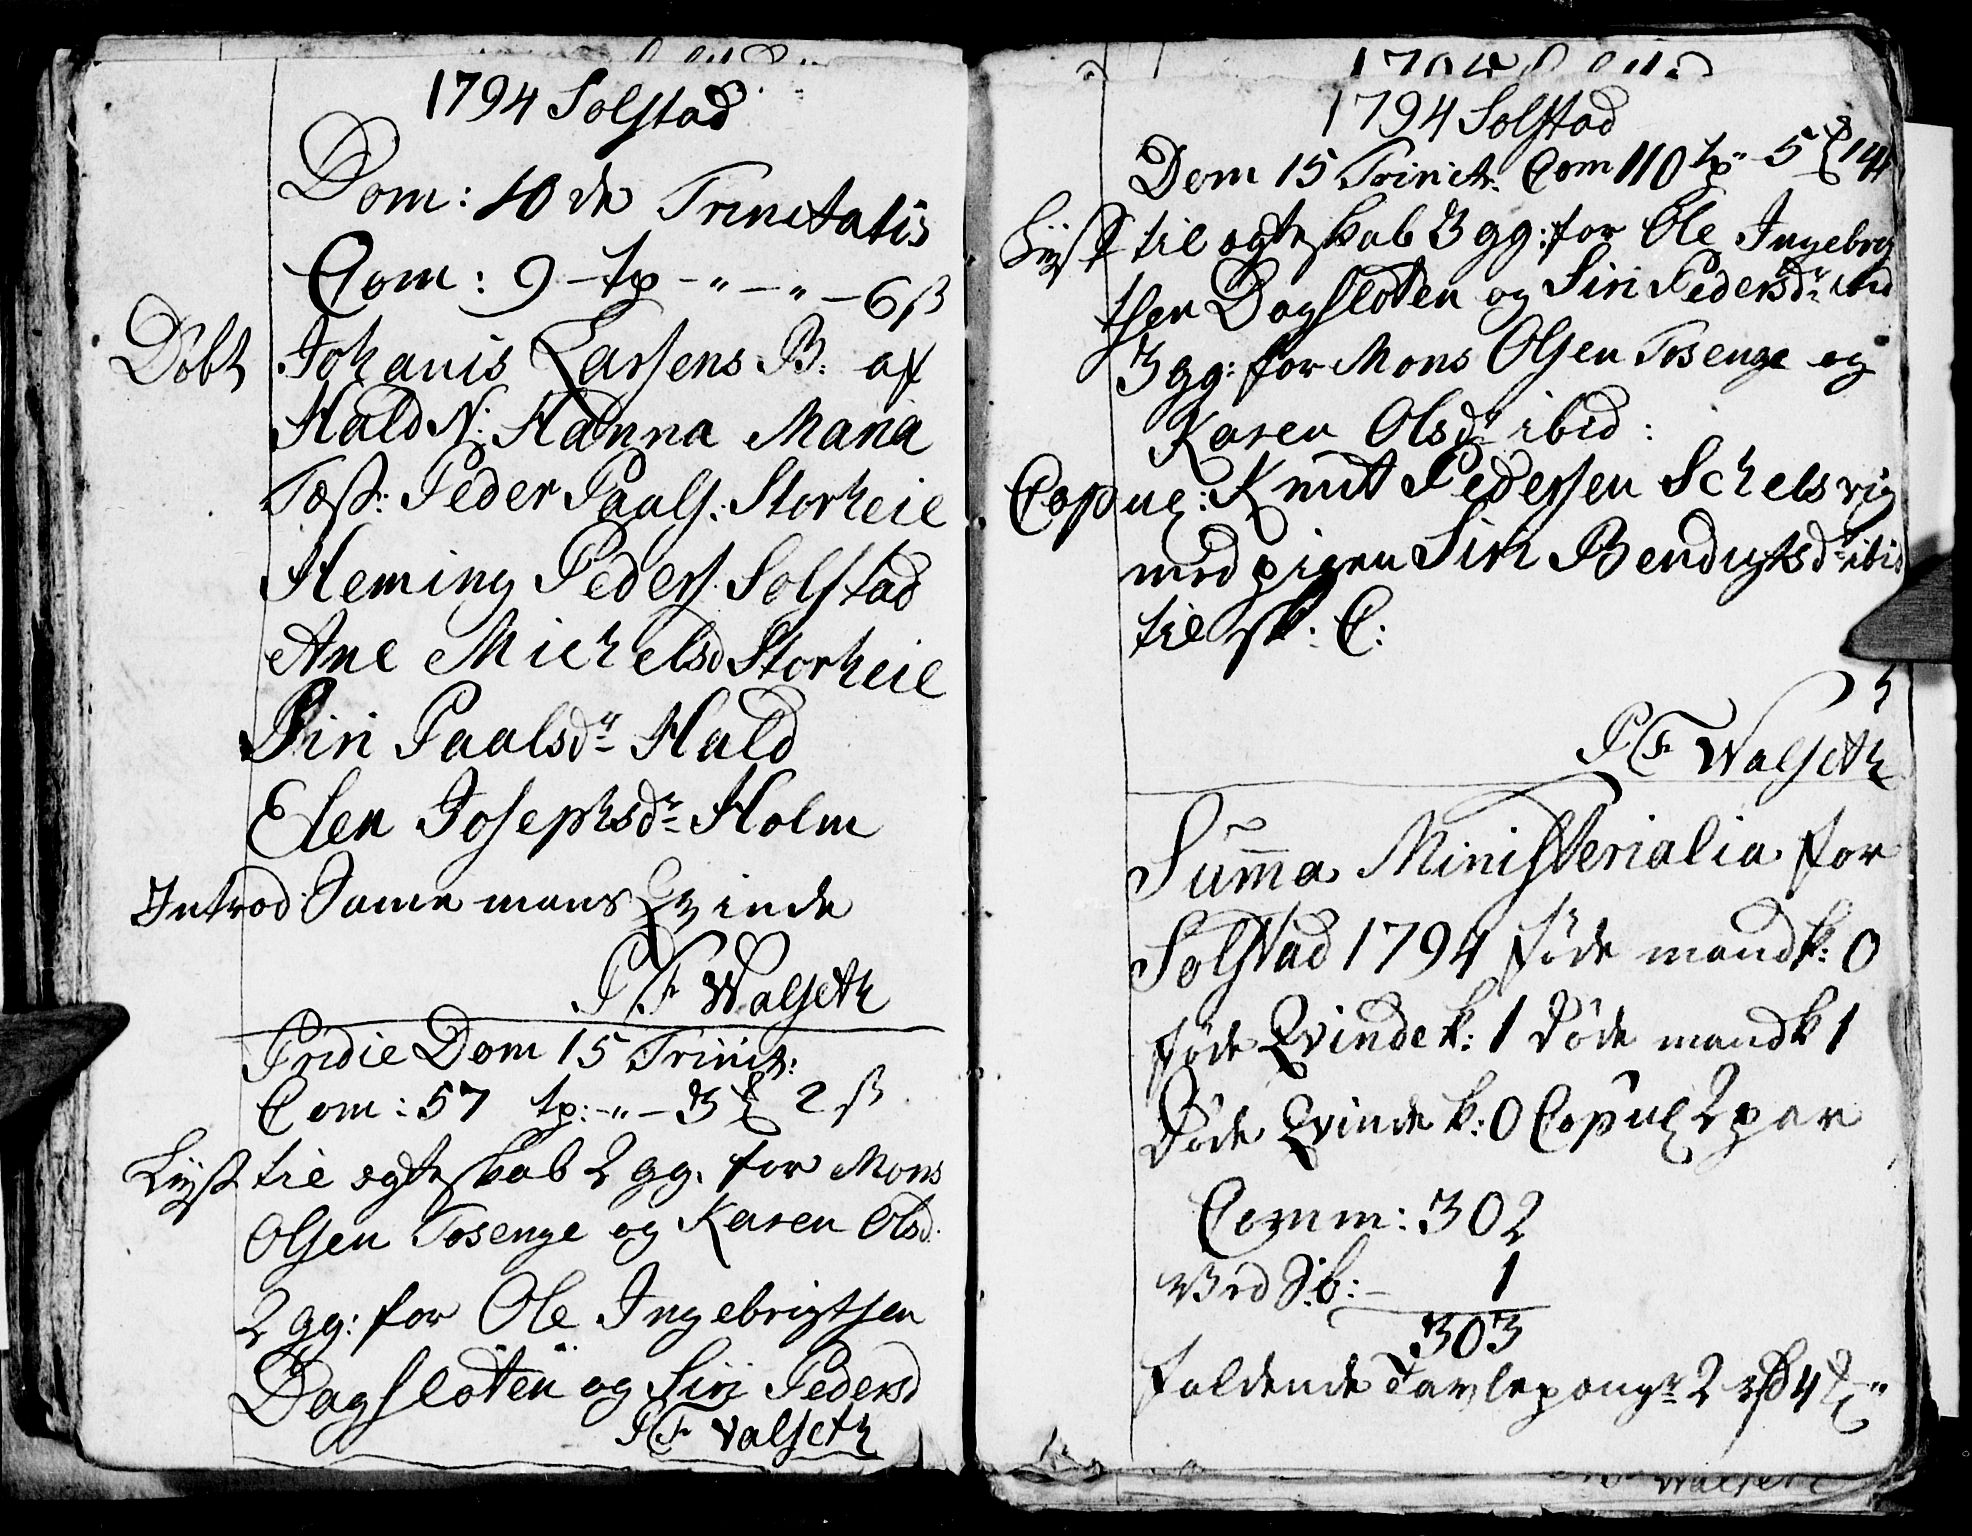 1794 Solstad
Dom: 10 de Trinitatis
Com: 9 - tp - " - " - 6 ß
Döbt Johanis Larsens B. af
Hald N: Hanna Maria
Test: Peder Paals: Storheie
Heming Peders: Solstad
Ane Michelsd Storheie
Siri Paalsdr Hald
Elen Josephsdr Holm
Introd: Samme mans Qvinde
P F Walseth
Pridie Dom 15 Trinit:
Com: 57 tp: - " - 3 2 ß
Lyst til egteskab 2 gg. for Mons
Olsen Tosenge og Karen Olsd:
2 gg: for Ole Ingebrigtsen
Dagsloten og Siri Pedersd
P F Valseth
1794 Solstad
Dom 15 Trinit: Com 110 tp " 5 14
Lyst til egteskab 3 gg: for Ole Ingebrig
tsen Dagsloten og Siri Pedersdr ibid
3 gg: for Mons Olsen Tosenge og
Karen Olsdr ibid:
Copul: Knut Pedersen Schelsvig
med pigen Siri Bendigtsdr ibid
til
P F Walseth
Summa Ministerialia for
Solstad 1794 föde mandk: 0
föde Qvindek: 1 Döde mandk 1
Döde Qvindek: 0 Copul 2 par
Comm: 302
Ved S: b: - 1
303
faldende Tavlepengr 2 rd 4 "